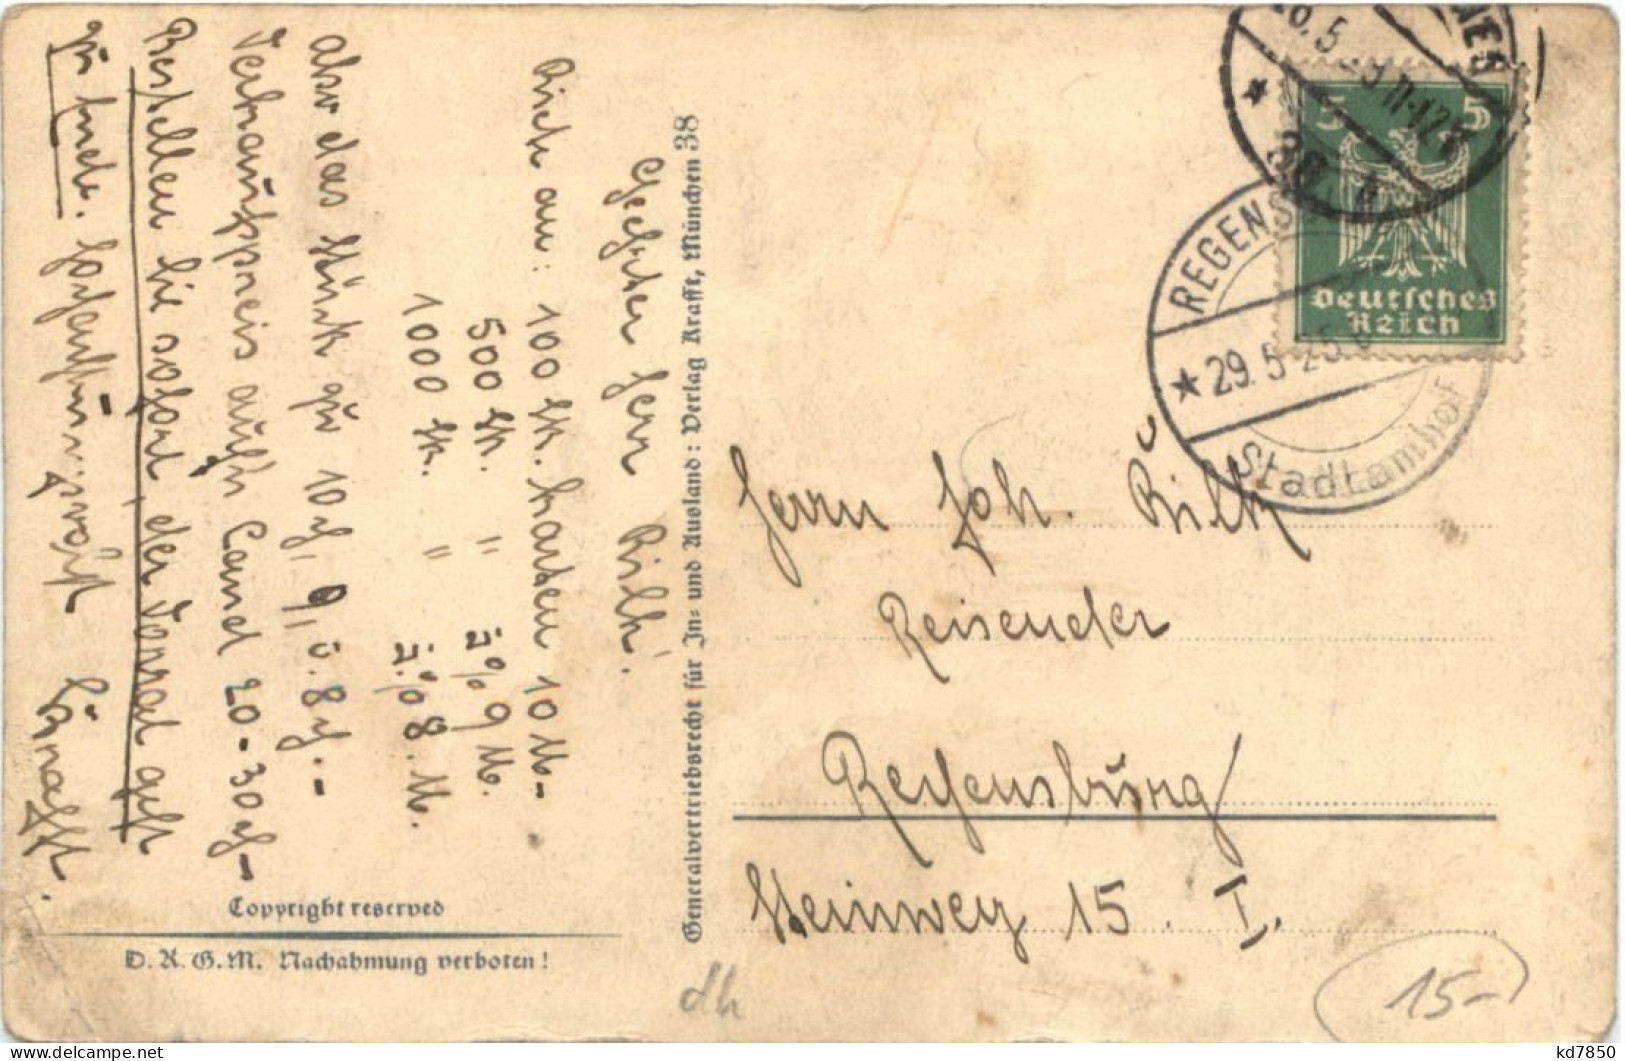 Geehrter Herr Bilk.
Biete an: 100 St. Karten 10 M-
500 St. " à % 9 M.
1000 St. " à % 8. M.
also das Stück zu 10 ₰, 9, u. 8 ₰.-
Verkaufspreis aufs Land 20-30 ₰-
Bestellen Sie sofort, der Vorrat geht
zu Ende. Hochachtungsvollst
Krafft.
Copyright reserved
D. R. G. M. Nachahmung verboten!
Generalvertriebsrecht für In- und Ausland: Verlag Krafft, München 38
5 5
Deutsches
Reich
REGENS
* 29. 5 25
Stadtamhof
Herrn Joh. Bilk
Reisender
Regensburg
Steinweg 15. I.
dh
15-
kd7850